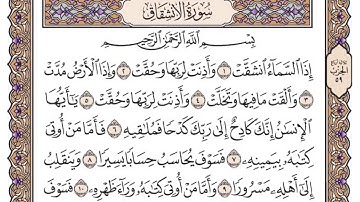 سُورَةُ الِانشِقَاقِ
بِسْمِ اللَّهِ الرَّحْمَٰنِ الرَّحِيمِ
إِذَا السَّمَاءُ انشَقَّتْ ١ وَأَذِنَتْ لِرَبِّهَا وَحُقَّتْ ٢ وَإِذَا الْأَرْضُ مُدَّتْ
٣ وَأَلْقَتْ مَا فِيهَا وَتَخَلَّتْ ٤ وَأَذِنَتْ لِرَبِّهَا وَحُقَّتْ ٥ يَٰأَيُّهَا
الْإِنسَٰنُ إِنَّكَ كَادِحٌ إِلَىٰ رَبِّكَ كَدْحًا فَمُلَٰقِيهِ ٦ فَأَمَّا مَنْ أُوتِيَ
كِتَٰبَهُ بِيَمِينِهِ ٧ فَسَوْفَ يُحَاسَبُ حِسَابًا يَسِيرًا ٨ وَيَنقَلِبُ
إِلَىٰ أَهْلِهِ مَسْرُورًا ٩ وَأَمَّا مَنْ أُوتِيَ كِتَٰبَهُ وَرَاءَ ظَهْرِهِ ١٠ فَسَوْفَ
الحزب
٥٩